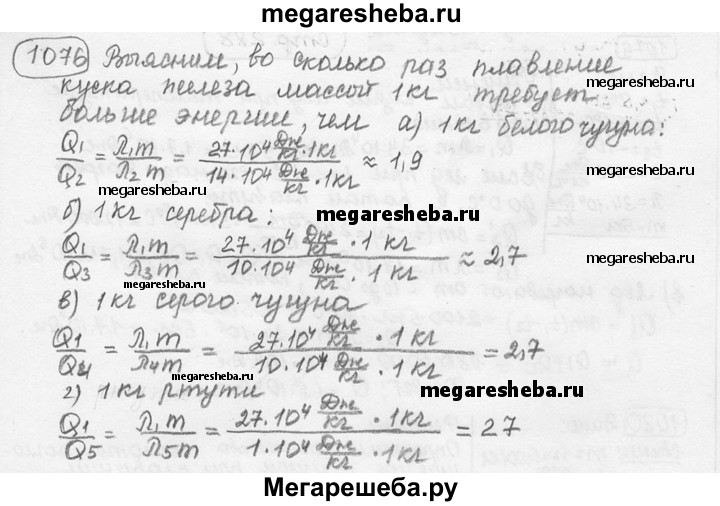 megaresheba.ru
1076 Выясним, во сколько раз плавление
куска железа массой 1 кг требует
megaresheba.ru
больше энергии, чем а) 1 кг белого чугуна:
Q₁/Q₂ = λ₁m/λ₂m = 27·10⁴ Дж/кг · 1кг / 14·10⁴ Дж/кг · 1кг ≈ 1,9
megaresheba.ru
megaresheba.ru
б) 1 кг серебра:
megaresheba.ru
Q₁/Q₃ = λ₁m/λ₃m = 27·10⁴ Дж/кг · 1 кг / 10·10⁴ Дж/кг · 1 кг ≈ 2,7
megaresheba.ru
в) 1 кг серого чугуна
Q₁/Q₄ = λ₁m/λ₄m = 27·10⁴ Дж/кг · 1 кг / 10·10⁴ Дж/кг · 1 кг = 2,7
megaresheba.ru
megaresheba.ru
г) 1 кг ртути
Q₁/Q₅ = λ₁m/λ₅m = 27·10⁴ Дж/кг · 1кг / 1·10⁴ Дж/кг · 1 кг = 27
Мегарешеба.ру